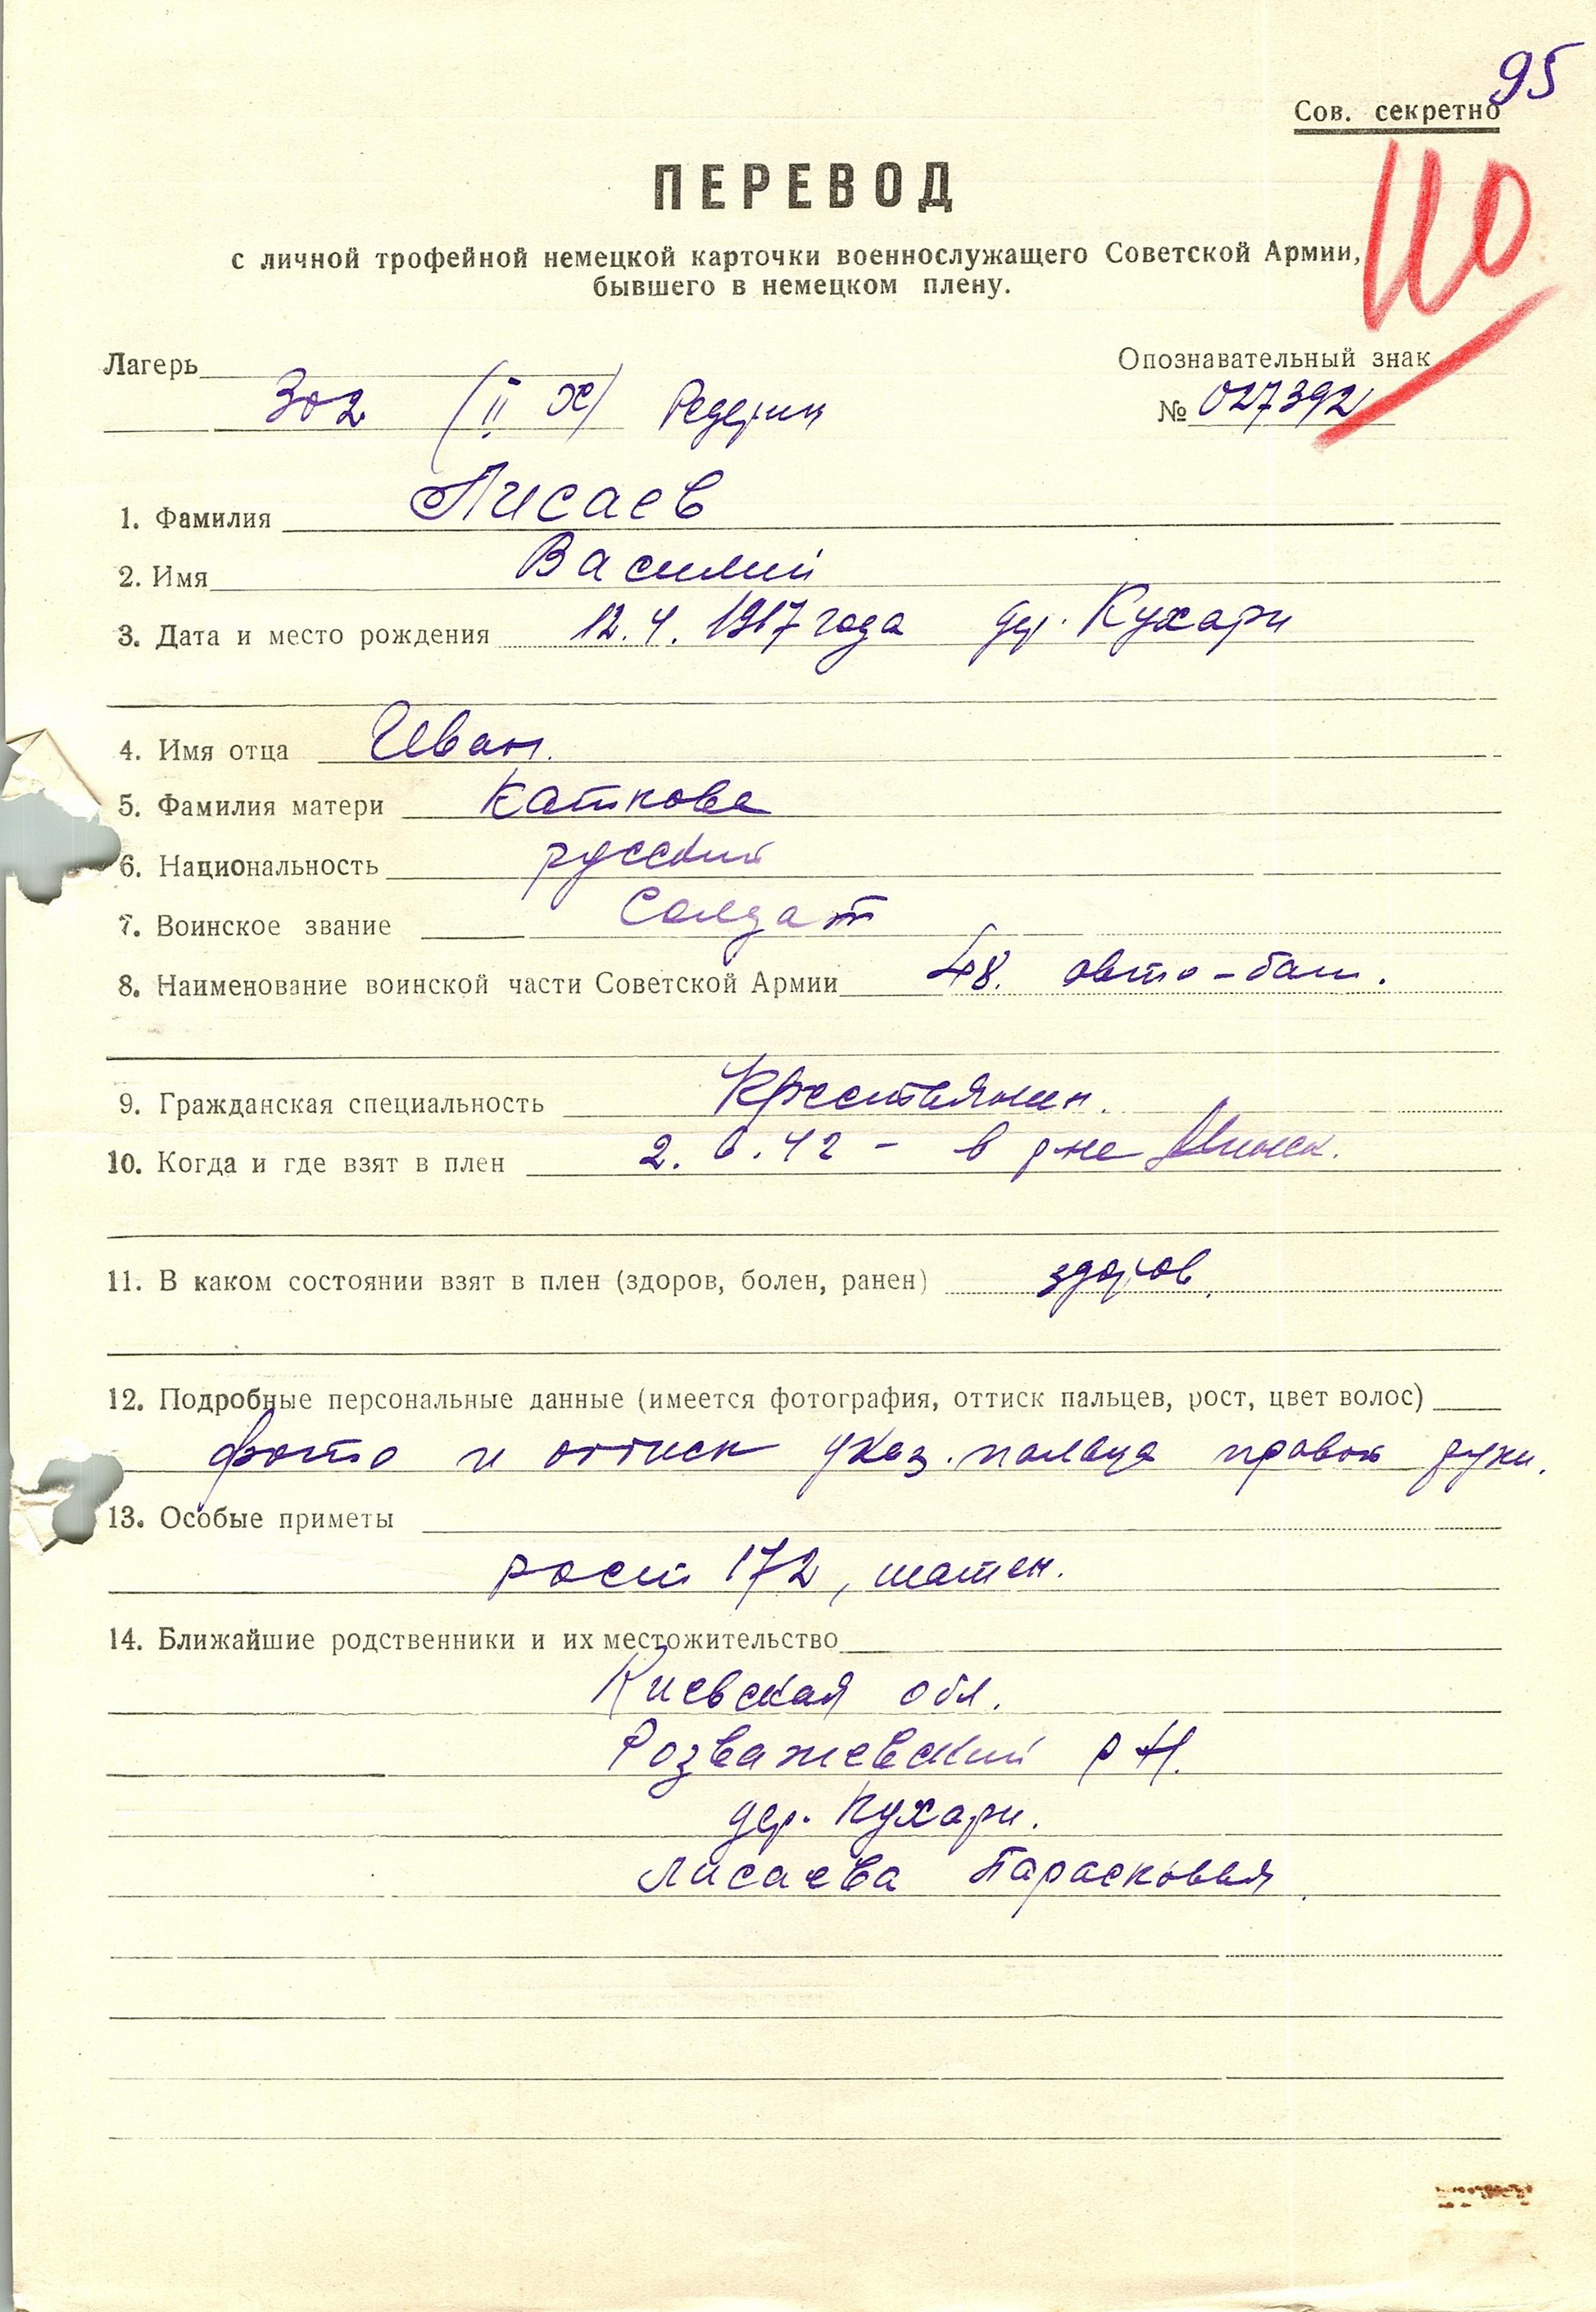 95
Сов. секретно
110
ПЕРЕВОД
с личной трофейной немецкой карточки военнослужащего Советской Армии,
бывшего в немецком плену.
Лагерь 302 (II H) Редериц
Опознавательный знак
№ 027392
1. Фамилия Лисаев
2. Имя Василий
3. Дата и место рождения 12.4.1917 года дер. Кухари
4. Имя отца Иван.
5. Фамилия матери Каткова
6. Национальность русский
7. Воинское звание Солдат
8. Наименование воинской части Советской Армии 48. авто-бат.
9. Гражданская специальность Крестьянин.
10. Когда и где взят в плен 2. 6. 42 - в р-не Минск.
11. В каком состоянии взят в плен (здоров, болен, ранен) здоров.
12. Подробные персональные данные (имеется фотография, оттиск пальцев, рост, цвет волос)
фото и оттиск указ. пальца правой руки.
13. Особые приметы
рост 172, шатен.
14. Ближайшие родственники и их местожительство
Киевская обл.
Розважевский р-н.
дер. Кухари.
Лисаева Парасковья.